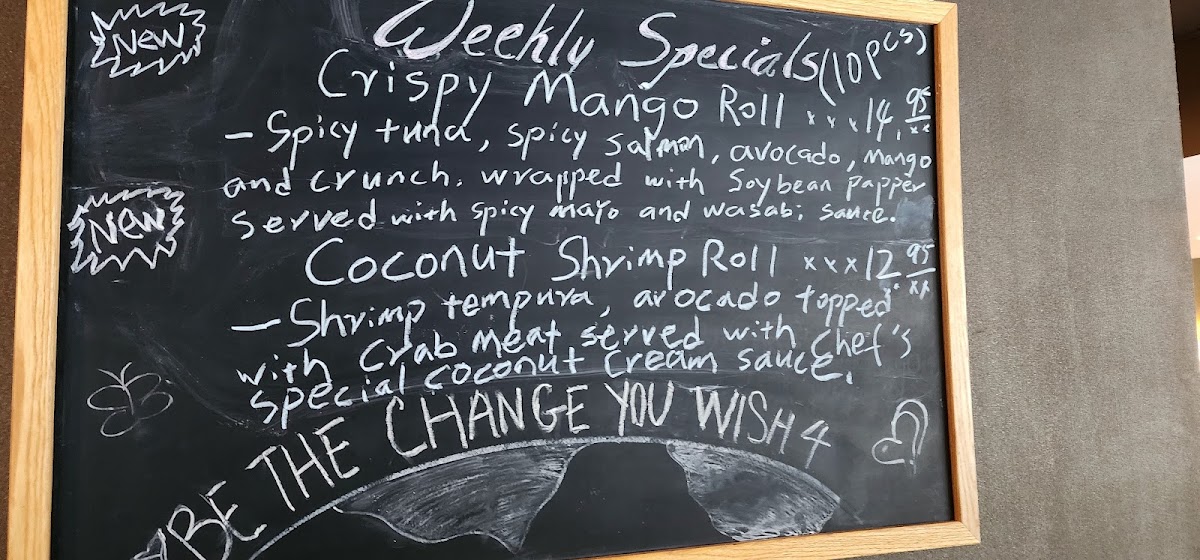 New
Weekly Specials (10pcs)
Crispy Mango Roll xxx14.95
- Spicy tuna, spicy salmon, avocado, mango
and crunch. wrapped with Soybean papper
served with spicy mayo and wasabi sauce.
New
Coconut Shrimp Roll xxx12.95
- Shrimp tempura, avocado topped
with Crab meat served with chef's
special coconut cream sauce.
BE THE CHANGE YOU WISH 4